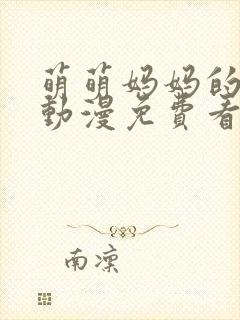 萌萌妈妈的
動漫免費看
南凜